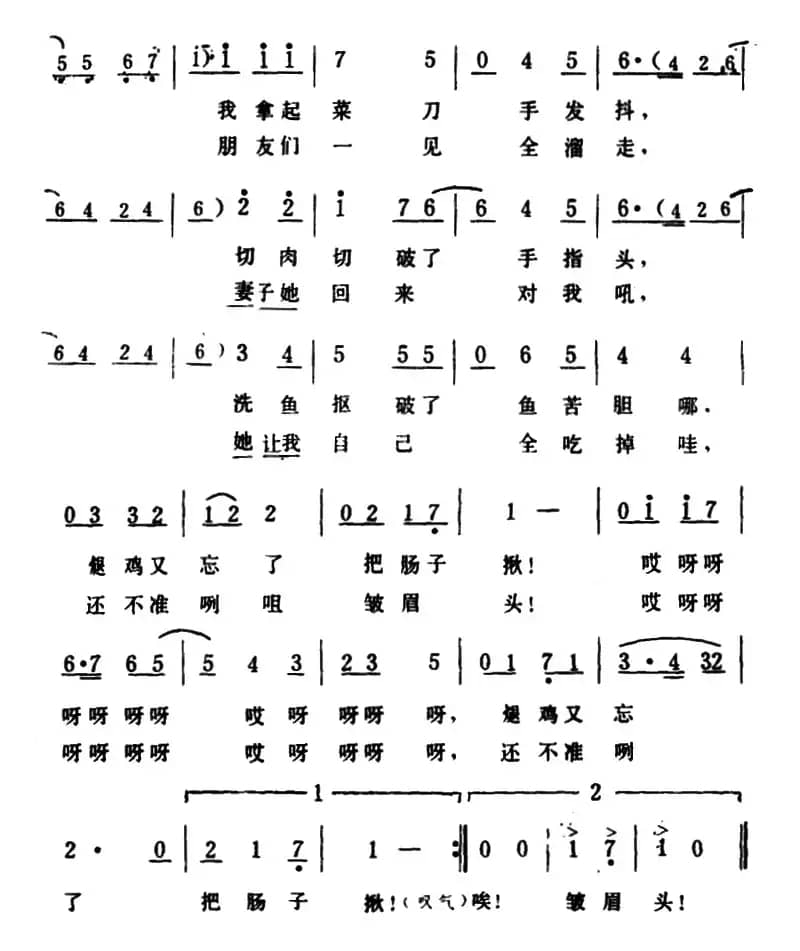 5 5 6 7 | i· i i i | 7 5 | 0 4 5 | 6·(4 2 6 |
我拿起菜刀手发抖,
朋友们一见全溜走,
6 4 2 4 | 6) 2 2 | i 7 6 | 6 4 5 | 6·(4 2 6 |
切肉切破了手指头,
妻子她回来对我吼,
6 4 2 4 | 6) 3 4 | 5 5 5 | 0 6 5 | 4 4 |
洗鱼抠破了鱼苦胆哪.
她让我自己全吃掉哇,
0 3 3 2 | 1 2 2 | 0 2 1 7 | 1 — | 0 i i 7 |
煺鸡又忘了把肠子揪! 哎呀呀
还不准咧咀皱眉头! 哎呀呀
6·7 6 5 | 5 4 3 | 2 3 5 | 0 1 7 1 | 3·4 3 2 |
呀呀呀呀 哎呀呀呀呀, 煺鸡又忘
呀呀呀呀 哎呀呀呀呀, 还不准咧
1 2
2· 0 | 2 1 7 | 1 — :| 0 0 | 1 7 | 1 0 ‖
了 把肠子揪!(叹气)唉! 皱眉头!